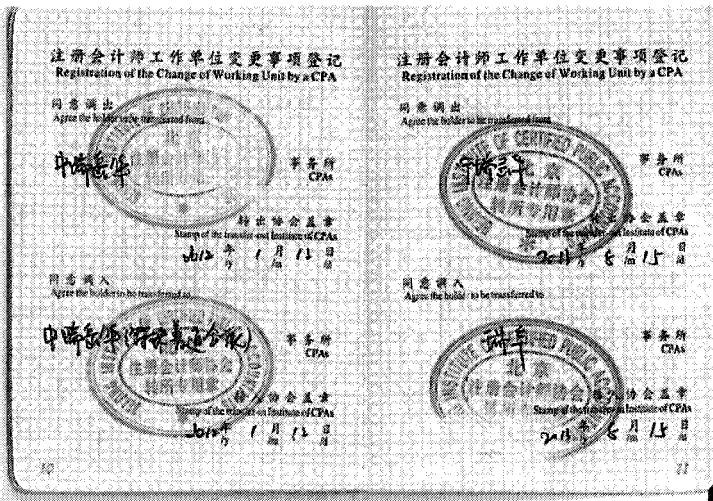 注册会计师工作单位变更事项登记
Registration of the Change of Working Unit by a CPA
同意调出
Agree the holder to be transferred from
中瑞岳华
事务所
CPAs
转出协会盖章
Stamp of the transfer-out Institute of CPAs
2012 年 1 月 12 日
/y /m /d
同意调入
Agree the holder to be transferred to
中瑞岳华(特殊普通合伙)
事务所
CPAs
注册会计师协会
转所专用章
转入协会盖章
Stamp of the transfer-in Institute of CPAs
2012 年 1 月 12 日
/y /m /d
10
注册会计师工作单位变更事项登记
Registration of the Change of Working Unit by a CPA
同意调出
Agree the holder to be transferred from
中瑞岳华
事务所
CPAs
INSTITUTE OF CERTIFIED PUBLIC
北京
注册会计师协会
转所专用章
转出协会盖章
Stamp of the transfer-out Institute of CPAs
2013 年 8 月 15 日
/y /m /d
同意调入
Agree the holder to be transferred to
瑞华
事务所
CPAs
北京
注册会计师协会
转入协会盖章
Stamp of the transfer-in Institute of CPAs
2013 年 8 月 15 日
/y /m /d
11